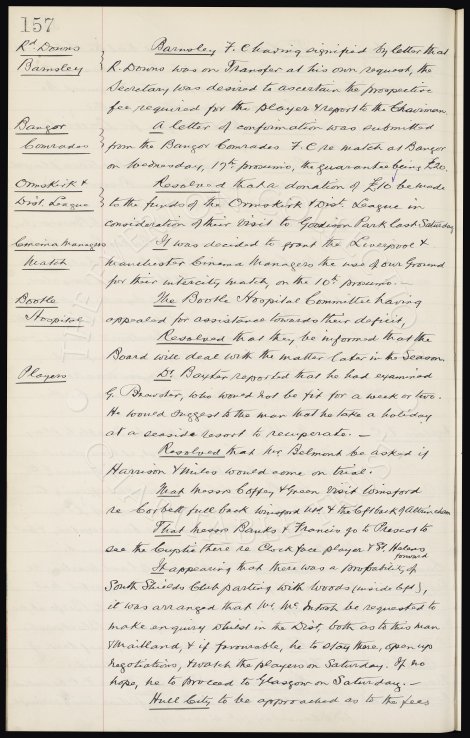 157
Rd Downs
Barnsley
Barnsley F.C having signified by letter that
R. Downs was on Transfer at his own request, the
Secretary was desired to ascertain the prospective
fee required for the player & report to the Chairman
Bangor
Comrades
A letter of confirmation was submitted
from the Bangor Comrades F.C re match at Bangor
on Wednesday, 17th proximo, the guarantee being £20,
Ormskirk &
Dist. League
Resolved that a donation of £10 be made
to the funds of the Ormskirk & Dist. League in
consideration of their visit to Goodison Park last Saturday
Cinema Managers
Match
It was decided to grant the Liverpool &
Manchester Cinema Managers the use of our Ground
for their intercity match, on the 10th proximo. —
Bootle
Hospital
The Bootle Hospital Committee having
appealed for assistance towards their deficit,
Resolved that they be informed that the
Board will deal with the matter later in the Season.
Players
Dr. Baxter reported that he had examined
G. Brewster, who would not be fit for a week or two.
He would suggest to the man that he take a holiday
at a seaside resort to recuperate. —
Resolved that Mr Belmont be asked if
Harrison & Miles would come on trial.
That Messrs Coffey & Green visit Winsford
re Corbett full back Winsford Utd. & the left back of Altrincham
That Messrs Banks & Francis go to Prescot to
see the Cuptie there re Clock face player & St. Helens
forward
It appearing that there was a probability of
South Shields Club parting with Woods (inside left),
it was arranged that Mr. McIntosh be requested to
make enquiry whilst in the Dist, both as to this man
& Maitland, & if favourable, he to stay there, open up
negotiations, & watch the players on Saturday. If no
hope, he to proceed to Glasgow on Saturday. —
Hull City to be approached as to the fees